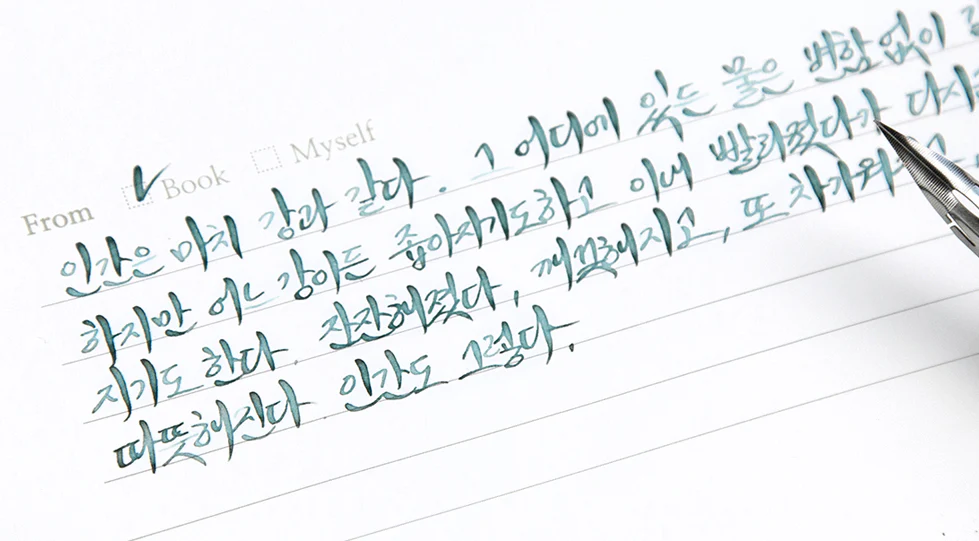 From Book Myself
인간은 마치 강과 같다. 그 어디에 있든 물은 변함 없이
하지만 어느 강이든 좁아지기도 하고 이내 빨라졌다가 다시
지기도 한다. 잔잔해졌다, 깨끗해지고, 또
따뜻해진다. 인간도 그렇다.